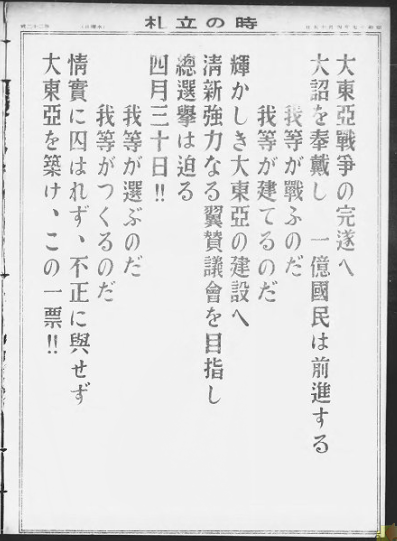 時の立札
大東亞戰爭の完遂へ
大詔を奉戴し 一億國民は前進する
我等が戰ふのだ
我等が建てるのだ
輝かしき大東亞の建設へ
淸新強力なる翼賛議會を目指し
總選擧は迫る
四月三十日!!
我等が選ぶのだ
我等がつくるのだ
情實に囚はれず、不正に與せず
大東亞を築け、この一票!!